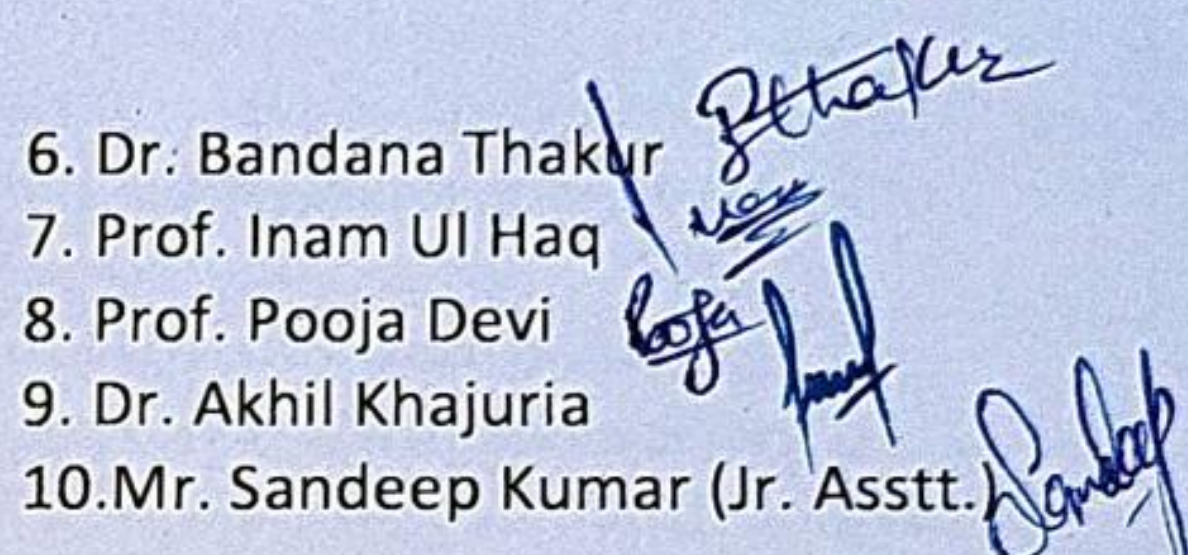 6. Dr. Bandana Thakur Bthakur
7. Prof. Inam Ul Haq
8. Prof. Pooja Devi Pooja
9. Dr. Akhil Khajuria
10.Mr. Sandeep Kumar (Jr. Asstt.) Sandeep